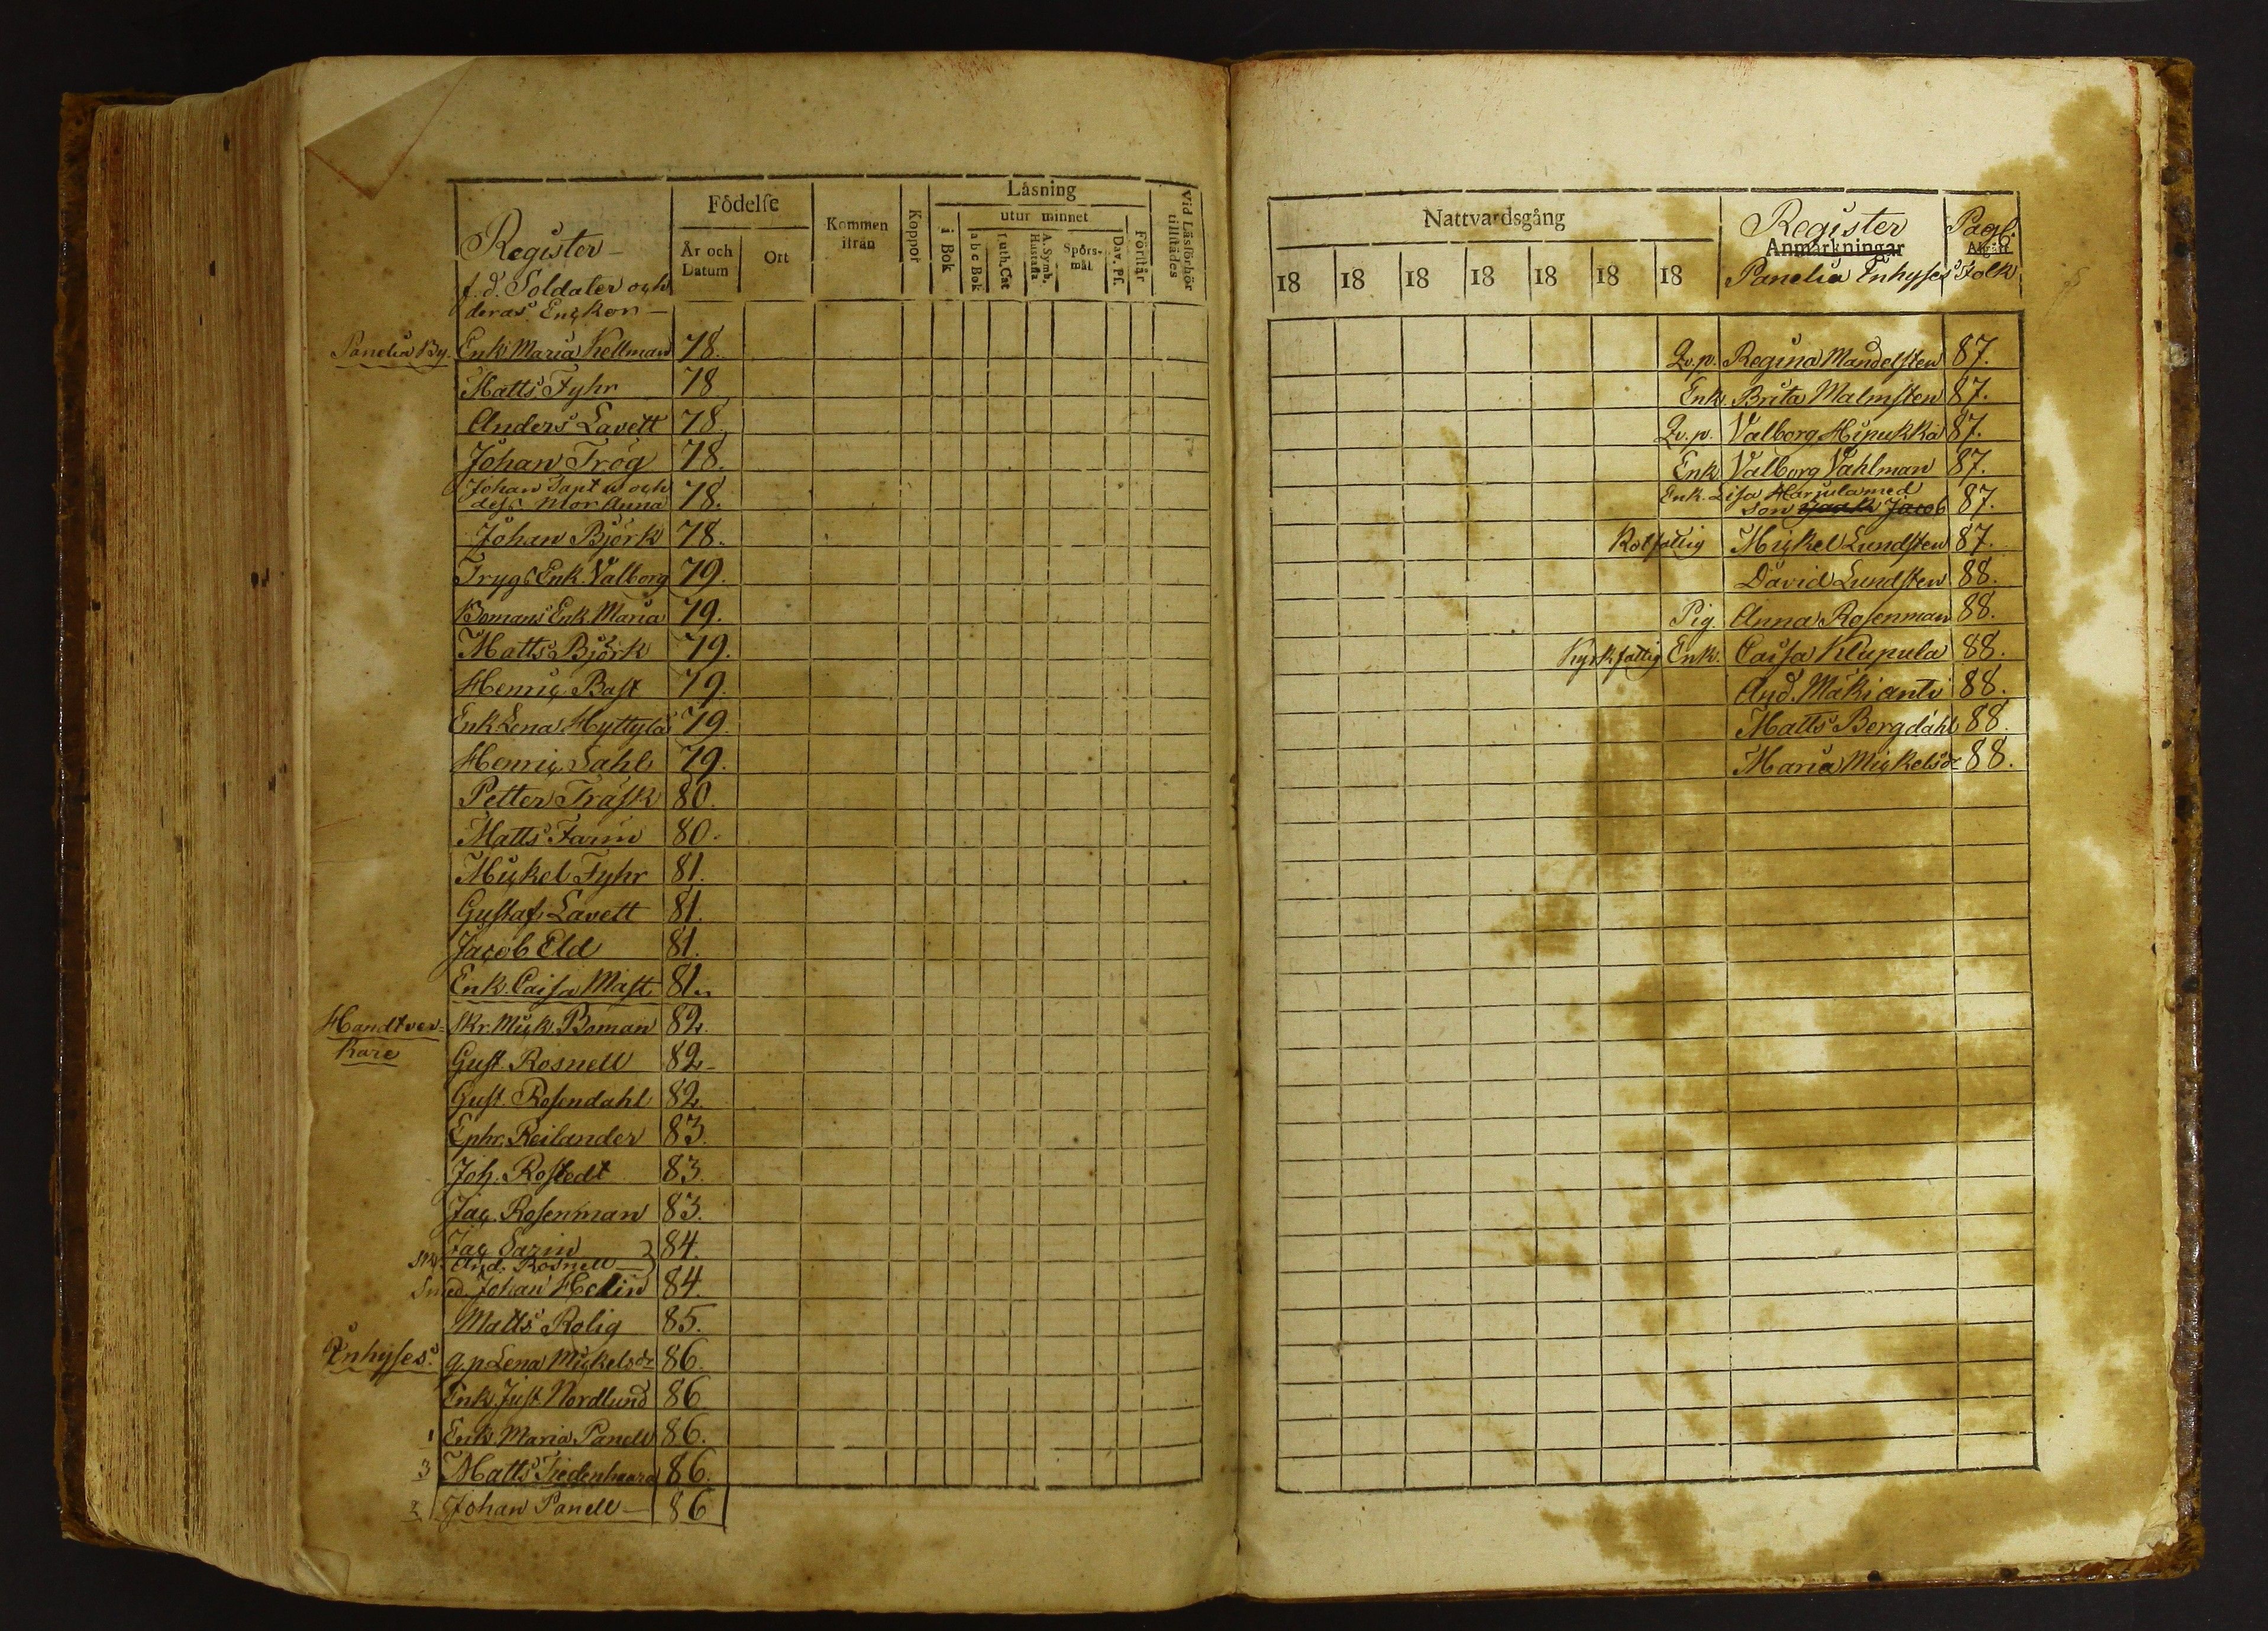 Register
f. d. Soldater och
deras Enckor
Födelse
År och Datum
Ort
Kommen ifrån
Koppor
Läsning
i Bok
utur minnet
a b c Bok
Luth. Cat
A. Symb. Hustafla
Spörsmål
Dav. Ps.
Förstår
Vid Läsförhör tillstädes
Panelia By. Enk. Maria Kellman 78.
Matts Fyhr 78
Anders Lavett 78.
Johan Trög 78.
Johan Tapt och
dess Mor Anna 78.
Johan Björk 78.
Trygs Enk. Valborg 79.
Bomans Enk. Maria 79.
Matts Björk 79.
Henric Bast 79.
Enk Lena Hyttylä 79.
Henric Dahl 79.
Petter Träsk 80.
Matts Farm 80.
Mickel Fyhr 81.
Gustaf Lavett 81.
Jacob Eld 81.
Enk. Caisa Mast 81.
Handtver- Skr. Mick. Boman 82.
kare Gust. Rosnell 82
Gust. Rosendahl 82.
Ephr. Reilander 83.
Joh. Rostedt 83.
Jac. Rosenman 83.
Jac. 84.
And. Rosnell
Smed. Johan Helin 84.
Matts Rolig 85.
Inhyses. q.p Lena Mickelsdr 86.
Enk. Just. Nordlund 86
1 Enk. Maria Panell 86.
3 Matts Tiedenhaara 86.
2 Johan Panell 86
Nattvardsgång
18 18 18 18 18 18 18
Register
Anmärkningar
Panelia Inhyses Folk
Pag.
Afgått
Qv.p. Regina Mandelsten 87.
Enk. Brita Malmsten 87.
Qv.p. Valborg Hipukka 87.
Enk. Valborg Vahlman 87.
Enk. Lisa Harjula med
Son Jacob 87.
Rotfattig Mickel Lundsten 87.
David Lundsten 88.
Pig. Anna Rosenman 88.
Kyrkfattig Enk. Caisa Klupula 88.
And. Mäkiantti 88.
Matts Bergdahl 88.
Maria Mickelsdr 88.